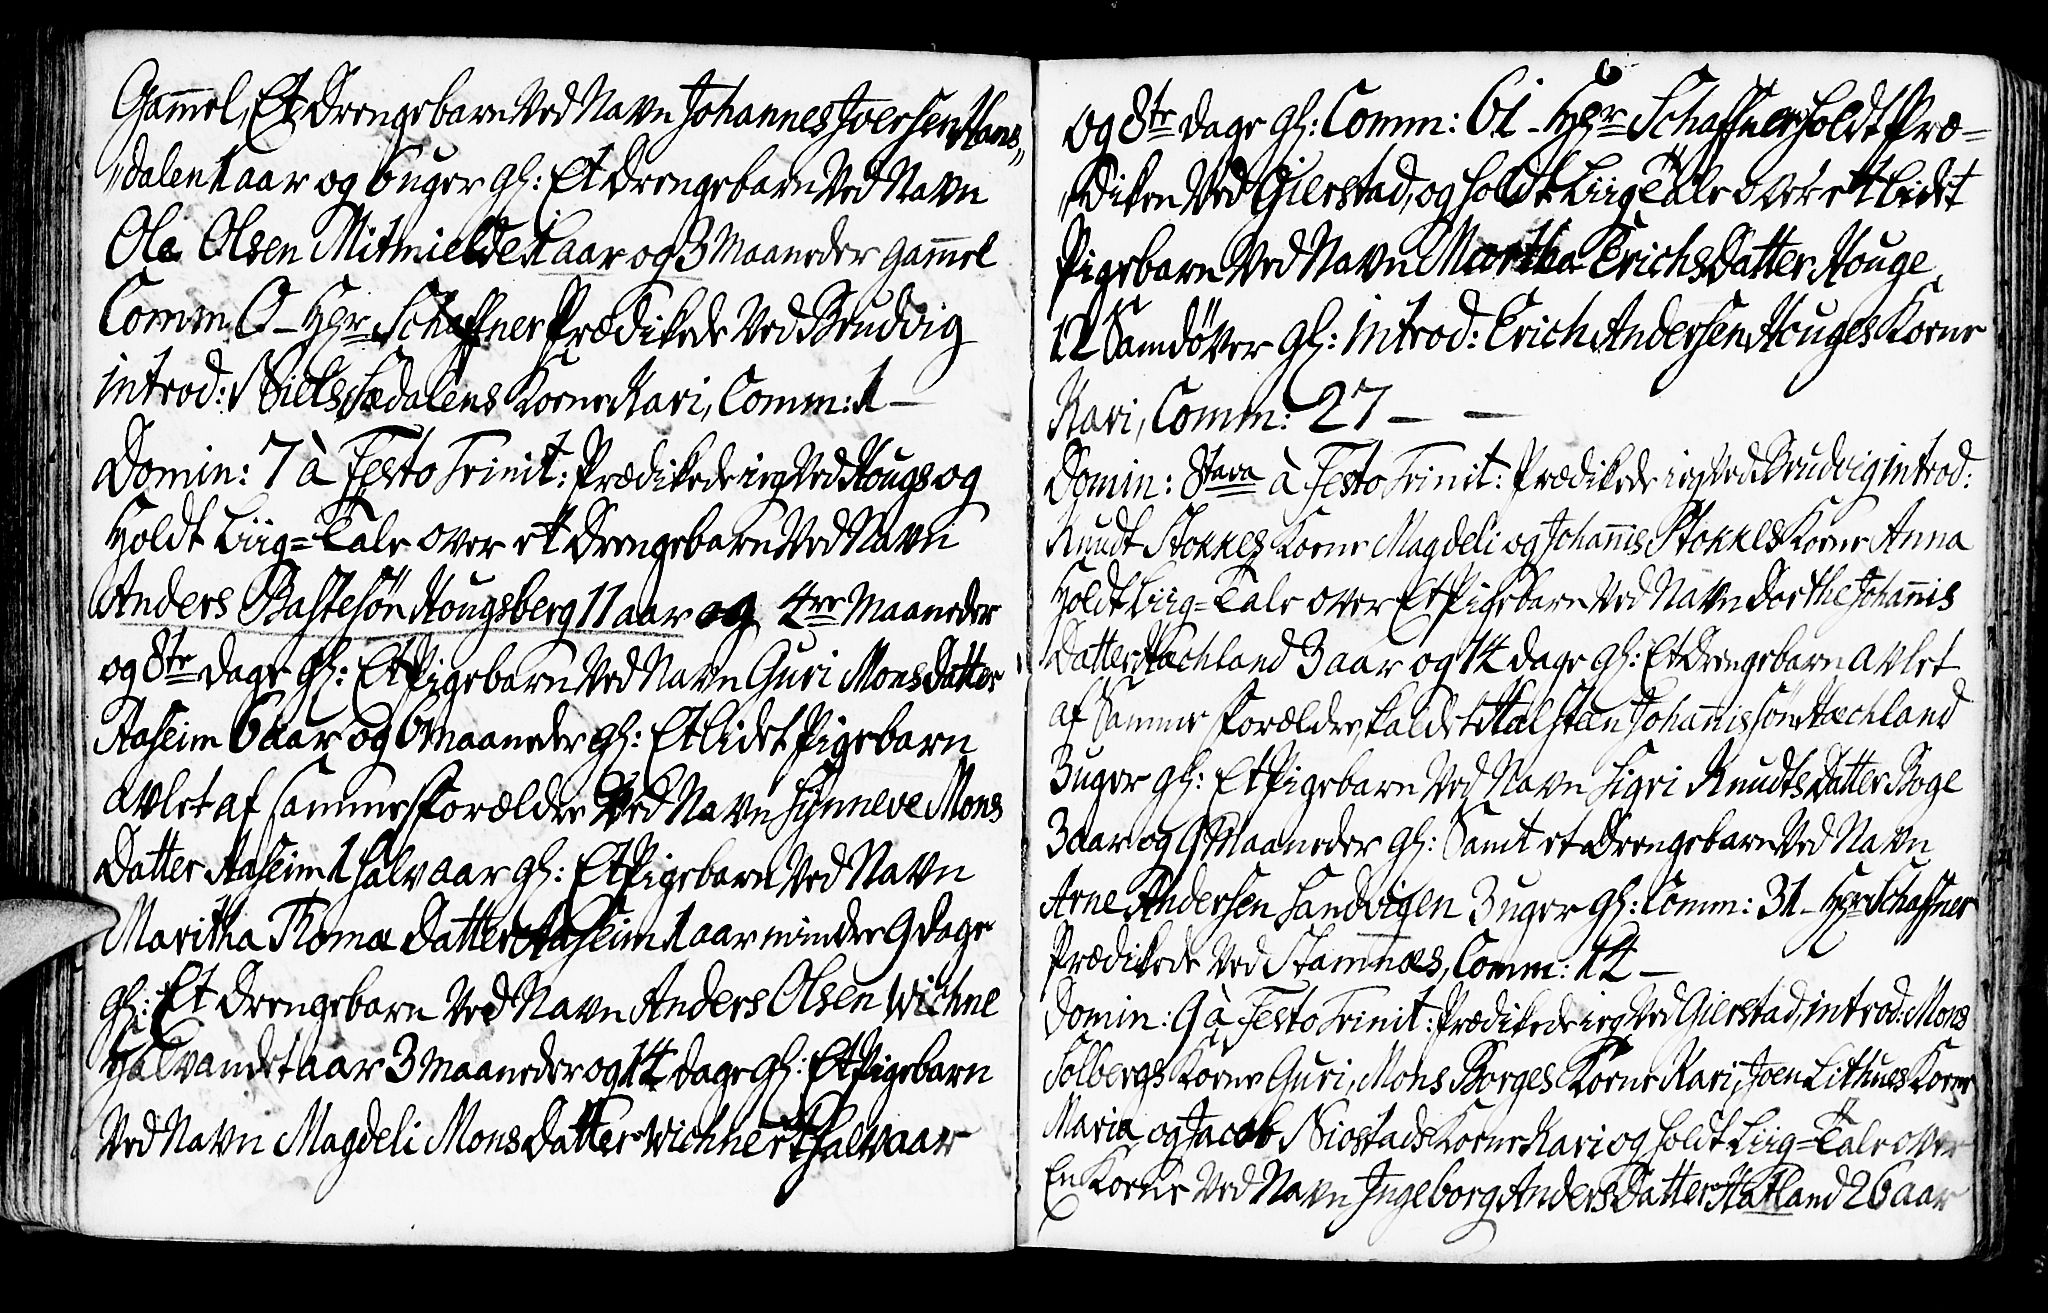 Gam̄el, Et Drengebarn Ved Navn Johannes Joersen Hans
dalen 1 aar og 6 uger gl: Et drengebarn Ved Navn
Ole Olsen Mitmielde 1 aar og 3 Maaneder gam̄el
Comm. 0 – Hr Schaffner Prædikede Ved Brudvig
introd: Niels Sædalens Kone Kari, Comm: 1 –
Domin: 7 à Festo Trinit: Prædikede ieg Ved Hougs og
Holdt Liig=Tale over et Drengebarn Ved Navn
Anders Bastesön Hougsberg 11 aar og 4re Maaneder
og 8te dage gl: Et Pigebarn Ved Navn Guri Mons datter
Aaseim 6 aar og 6 Maaneder gl: Et lidet Pigebarn
avlet af samme Forældre Ved Navn Synneve Mons
Datter Aaseim 1 halv aar gl: Et Pigebarn Ved Navn
Maritha Thomæ Datter Aaseim 1 aar mindre 9 dage
gl: Et Drengebarn Ved Navn Anders Olsen Wichne
Halvandet aar 3 Maaneder og 14 dage gl: Et Pigebarn
Ved Navn Magdeli Mons Datter Wichne et halv aar
og 8te dage gl: Comm: 61 – Hr Schaffner holdt Præ=
diken Ved Gierstad, og holdt Liig Tale over et lidet
Pigebarn Ved Navn Martha Erichs Datter Houge
12 Samdöver gl: introd: Erich Andersen Houges Kone
Kari, Comm: 27 – –
Domin: 8tava à Festo Trinit: Prædikede ieg Ved Brudvig introd:
Knudt Stokkes Kone Magdeli og Johan̄is Stokkes Kone Anna
Holdt Liig=Tale over Et Pigebarn Ved Navn Dorthe Johan̄is
Datter Hæchland 3 aar og 14 dage gl: Et Drengebarn avlet
af Samme Forældre, kaldet Halsten Johan̄issön Hæchland
3 uger gl: Et Pigebarn Ved Navn Sigri Knudts Datter Boge
3 aar og 9 Maaneder gl: Samt et Drengebarn Ved Navn
Arne Andersen Sandvigen 3 uger gl: Comm: 31 – Hr Schaffner
Prædikede Ved Stamnæs, Comm: 14 –
Domin: 9 à Festo Trinit: Prædikede ieg Ved Gierstad, introd: Mons
Solbergs Kone Guri, Mons Borges Kone Kari, Joen Lithues Kone
Maria, og Jacob Niostads Kone Kari og holdt Liig=Tale over
En Kone Ved Navn Ingeborg Anders Datter Hatland 26 aar